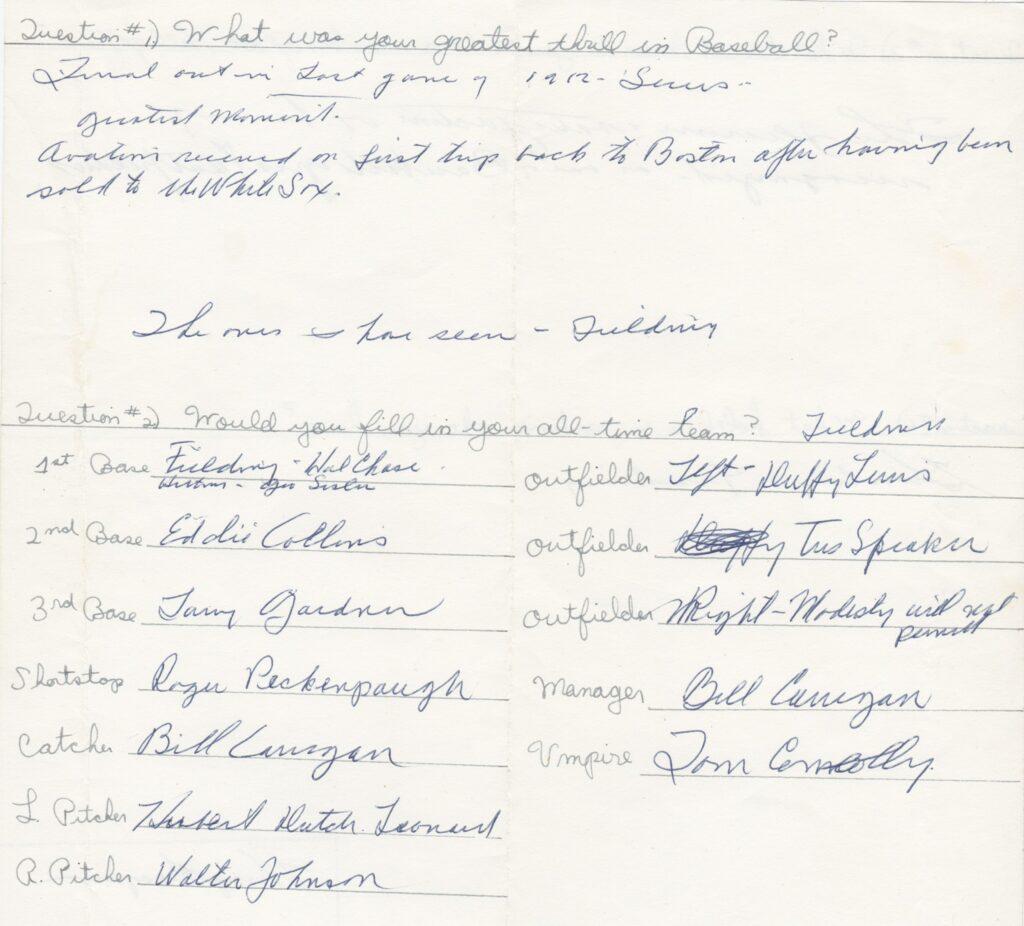 Question #1.) What was your greatest thrill in Baseball?
Final out in last game of 1912 - Series -
greatest moment.
Ovation received on first trip back to Boston after having been
sold to the White Sox.
The ones I have seen - Fielding
Question #2) Would you fill in your all-time team? Fielding
1st Base Fielding - Hal Chase
Geo Sisler
2nd Base Eddie Collins
3rd Base Larry Gardner
Shortstop Roger Peckenpaugh
Catcher Bill Carrigan
L. Pitcher Hubert Dutch Leonard
R. Pitcher Walter Johnson
outfielder Left - Duffy Lewis
outfielder Tris Speaker
outfielder Right - Modesty will not
permit
Manager Bill Carrigan
Umpire Tom Connolly